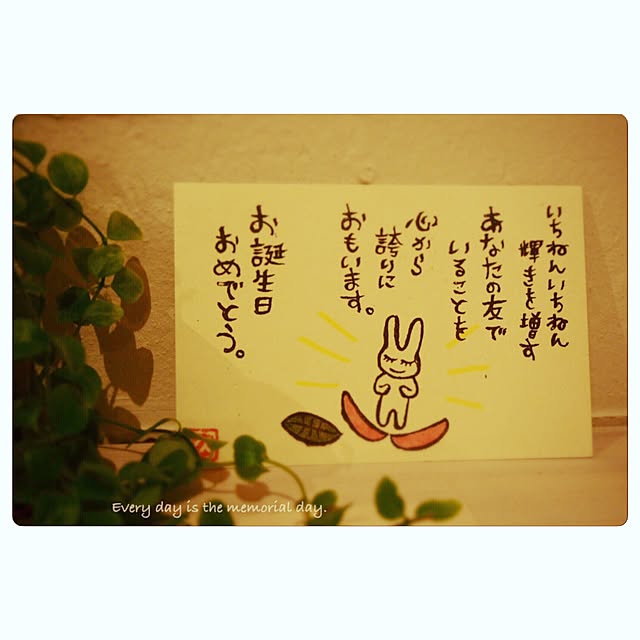 いちねんいちねん
輝きを増す
あなたの友で
いることを
心から
誇りに
おもいます。
お誕生日
おめでとう。
Every day is the memorial day.